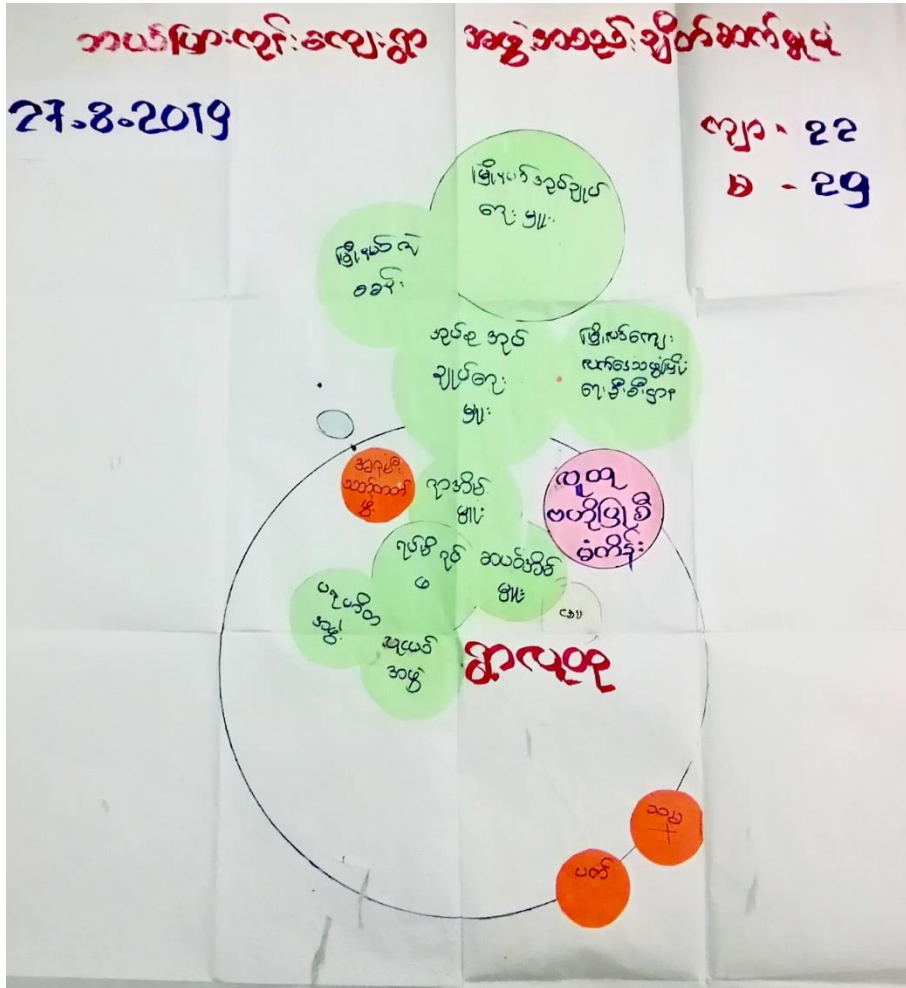 ဘယ်ပြားကုန်းကျေးရွာ အဖွဲ့အစည်းချိတ်ဆက်မှုပုံ
27.8.2019
ကျာ - 22
မ - 29
မြို့နယ်အုပ်ချုပ်
ရေးမှူး
မြို့နယ်ရဲ
စခန်း
အုပ်စုအုပ်
ချုပ်ရေး
မှူး
မြို့နယ်ကျေး
လက်ဒေသဖွံ့ဖြိုး
ရေးဦးစီးဌာန
အရံမီး
သတ်တပ်
ဖွဲ့
ရာအိမ်
မှူး
လူထု
ဗဟိုပြုစီ
မံကိန်း
ရပ်မိရပ်
ဖ
ဆယ်အိမ်
မှူး
ပရဟိတ
အဖွဲ့
လူငယ်
အဖွဲ့
ရွာလူထု
သမ
ပတ်